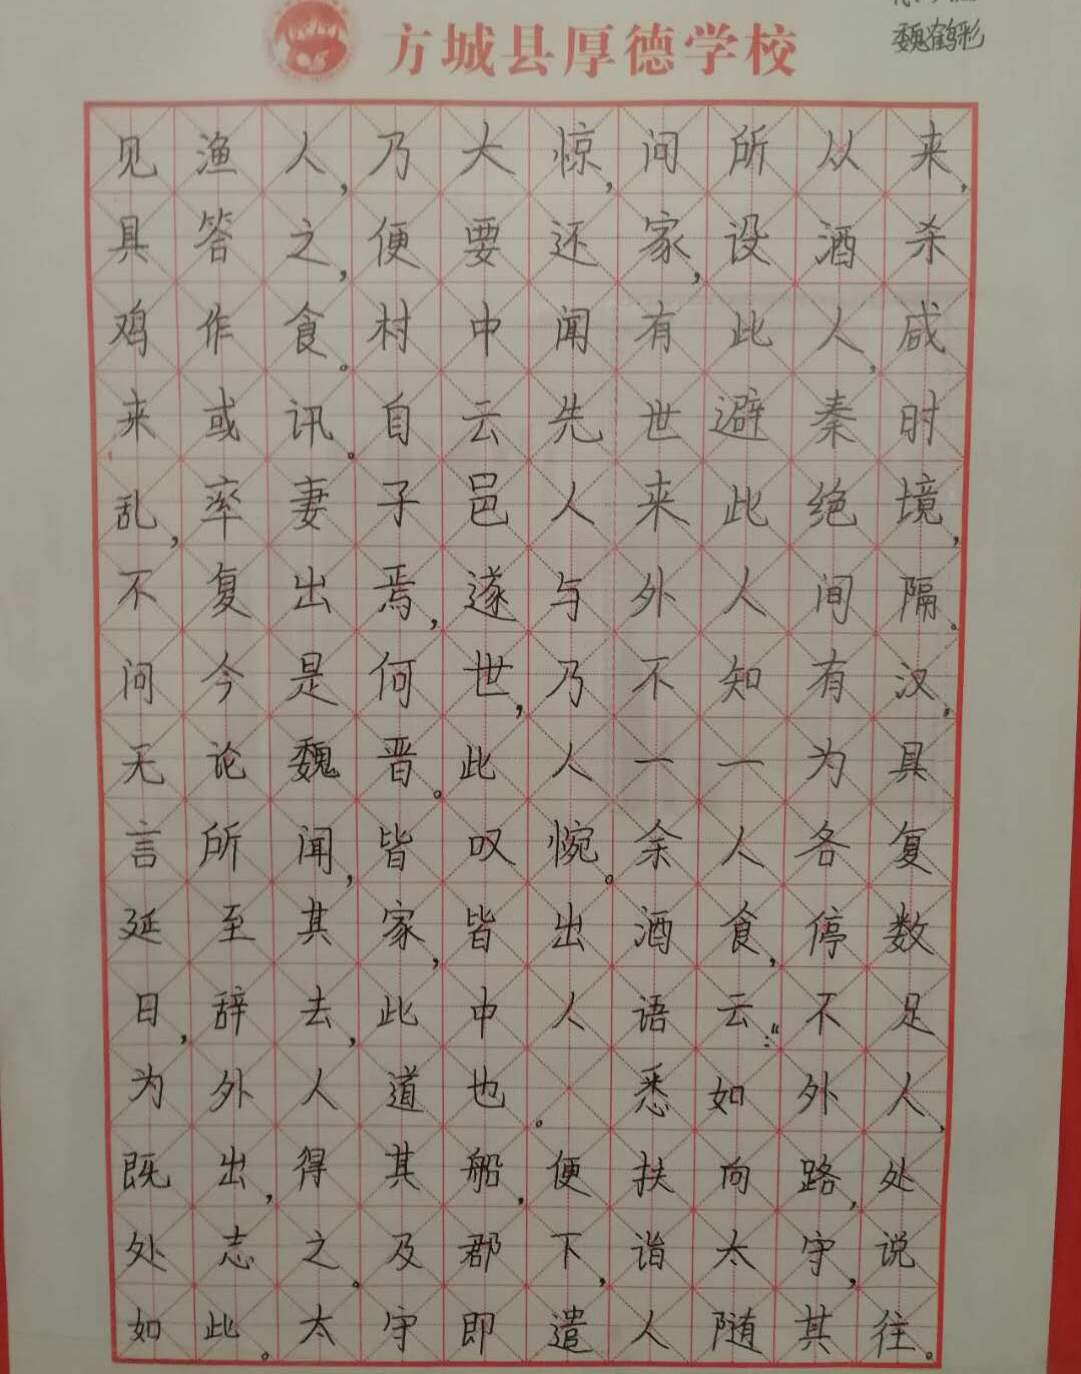 方城县厚德学校
魏鹤彩
见渔人,乃大惊,问所从来,
具答之,便要还家,设酒杀
鸡作食。村中闻有此人,咸
来或讯。自云先世避秦时
乱,率妻子邑人来此绝境,
不复出焉,遂与外人间隔。
问今是何世,乃不知有汉,
无论魏晋。此人一一为具
言所闻,皆叹惋。余人各复
延至其家,皆出酒食,停数
日,辞去,此中人语云:“不足
为外人道也。 悉如外人,
既出,得其船,便扶向路,处
处志之。及郡下,诣太守,说
如此。太守即遣人随其往。